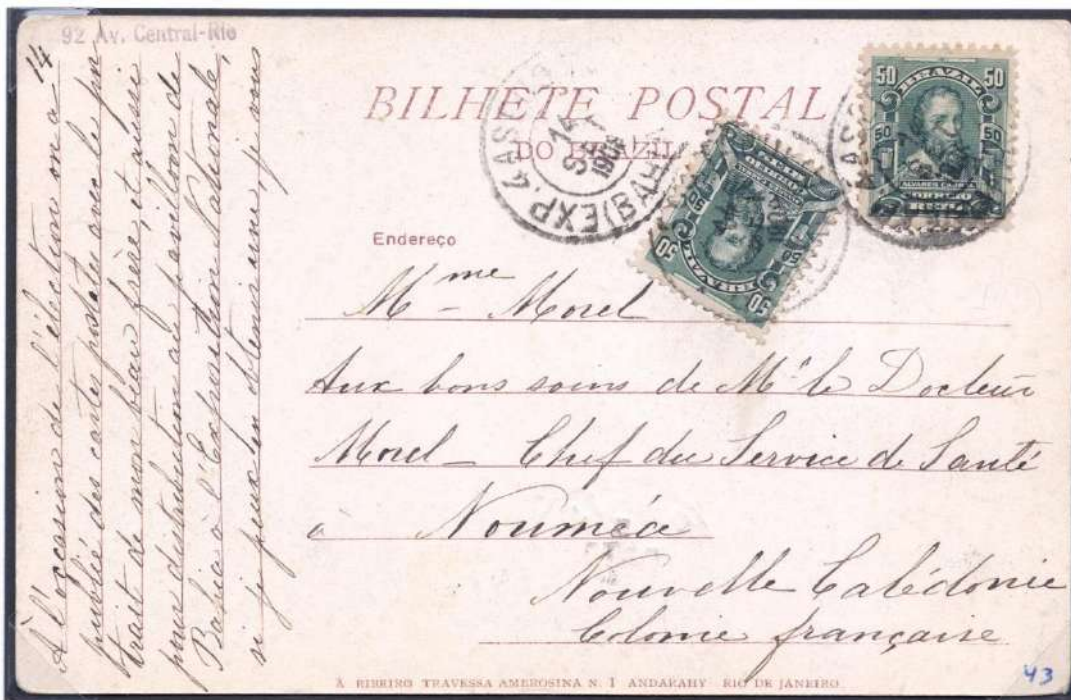 92 Av. Central-Rio
14
À l'occasion de l'élection on a
publié des cartes postales avec le por
trait de mon beau frère, et aussi
pour distribution au pavillon de
Bahia à l'Exposition Nationale,
si je peux en obtenir une, je vous
BILHETE POSTAL
DO BRAZIL
EXP. 4A S
14
SET
190
(BAHIA)
50 BRAZIL 50
50 50
ALVARES CABRAL
CORREIO
REIS
50 BRAZIL 50
CORREIO
REIS
Endereço
Mme Morel
Aux bons soins de Mr le Docteur
Morel - Chef du Service de Santé
à Nouméa
Nouvelle Calédonie
Colonie française
A. RIBEIRO TRAVESSA AMBROSINA N. 1 ANDARAHY RIO DE JANEIRO.
43